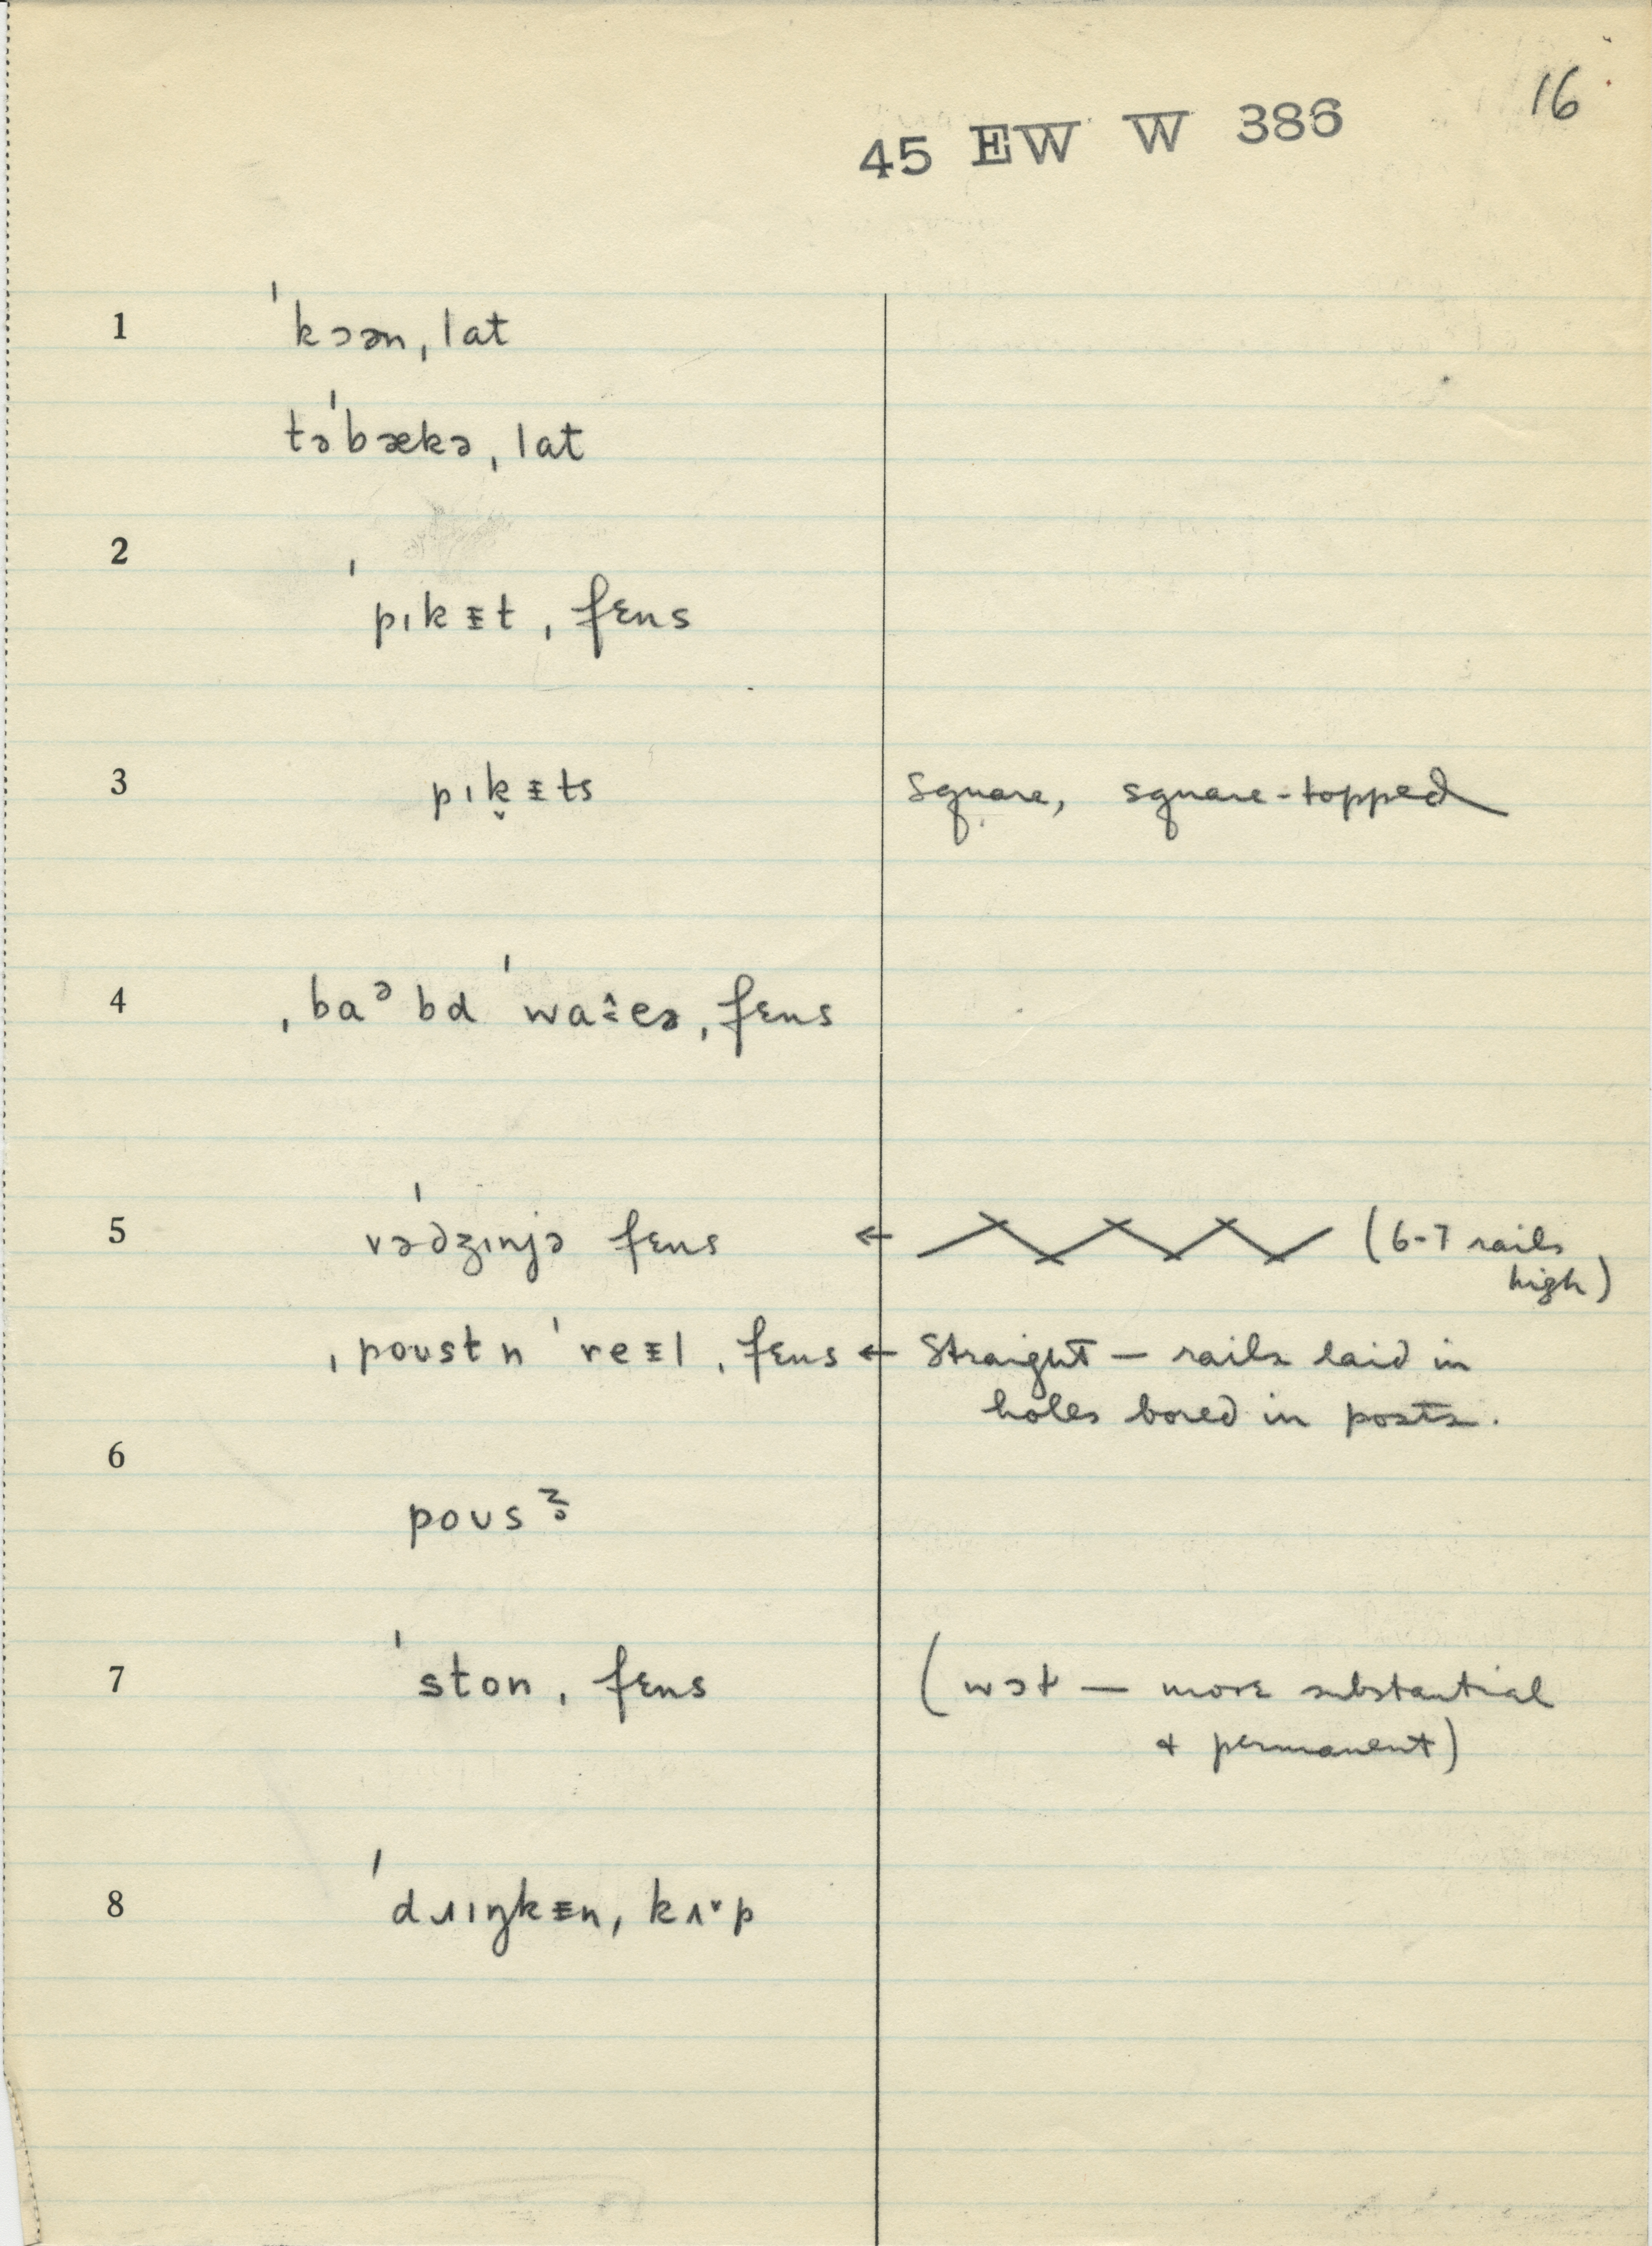 16
45 EW W 386
1 ˈkɔən ˌlat
təˈbækə ˌlat
2
ˈpɪkᵻt ˌfɛns
3 pɪk̬ᵻts square, square-topped
4 ˌbaᵊbd ˈwa ˌfɛns
5 vəˈdʒɪnjə fɛns ← (6-7 rails
high)
ˌpoustn ˈreᵻl ˌfɛns ← Straight – rails laid in
holes bored in posts.
6
7 ˈston ˌfɛns (wɔɫ – more substantial
& permanent)
8 ˈdɹɪŋkᵻn ˌkʌ˅p